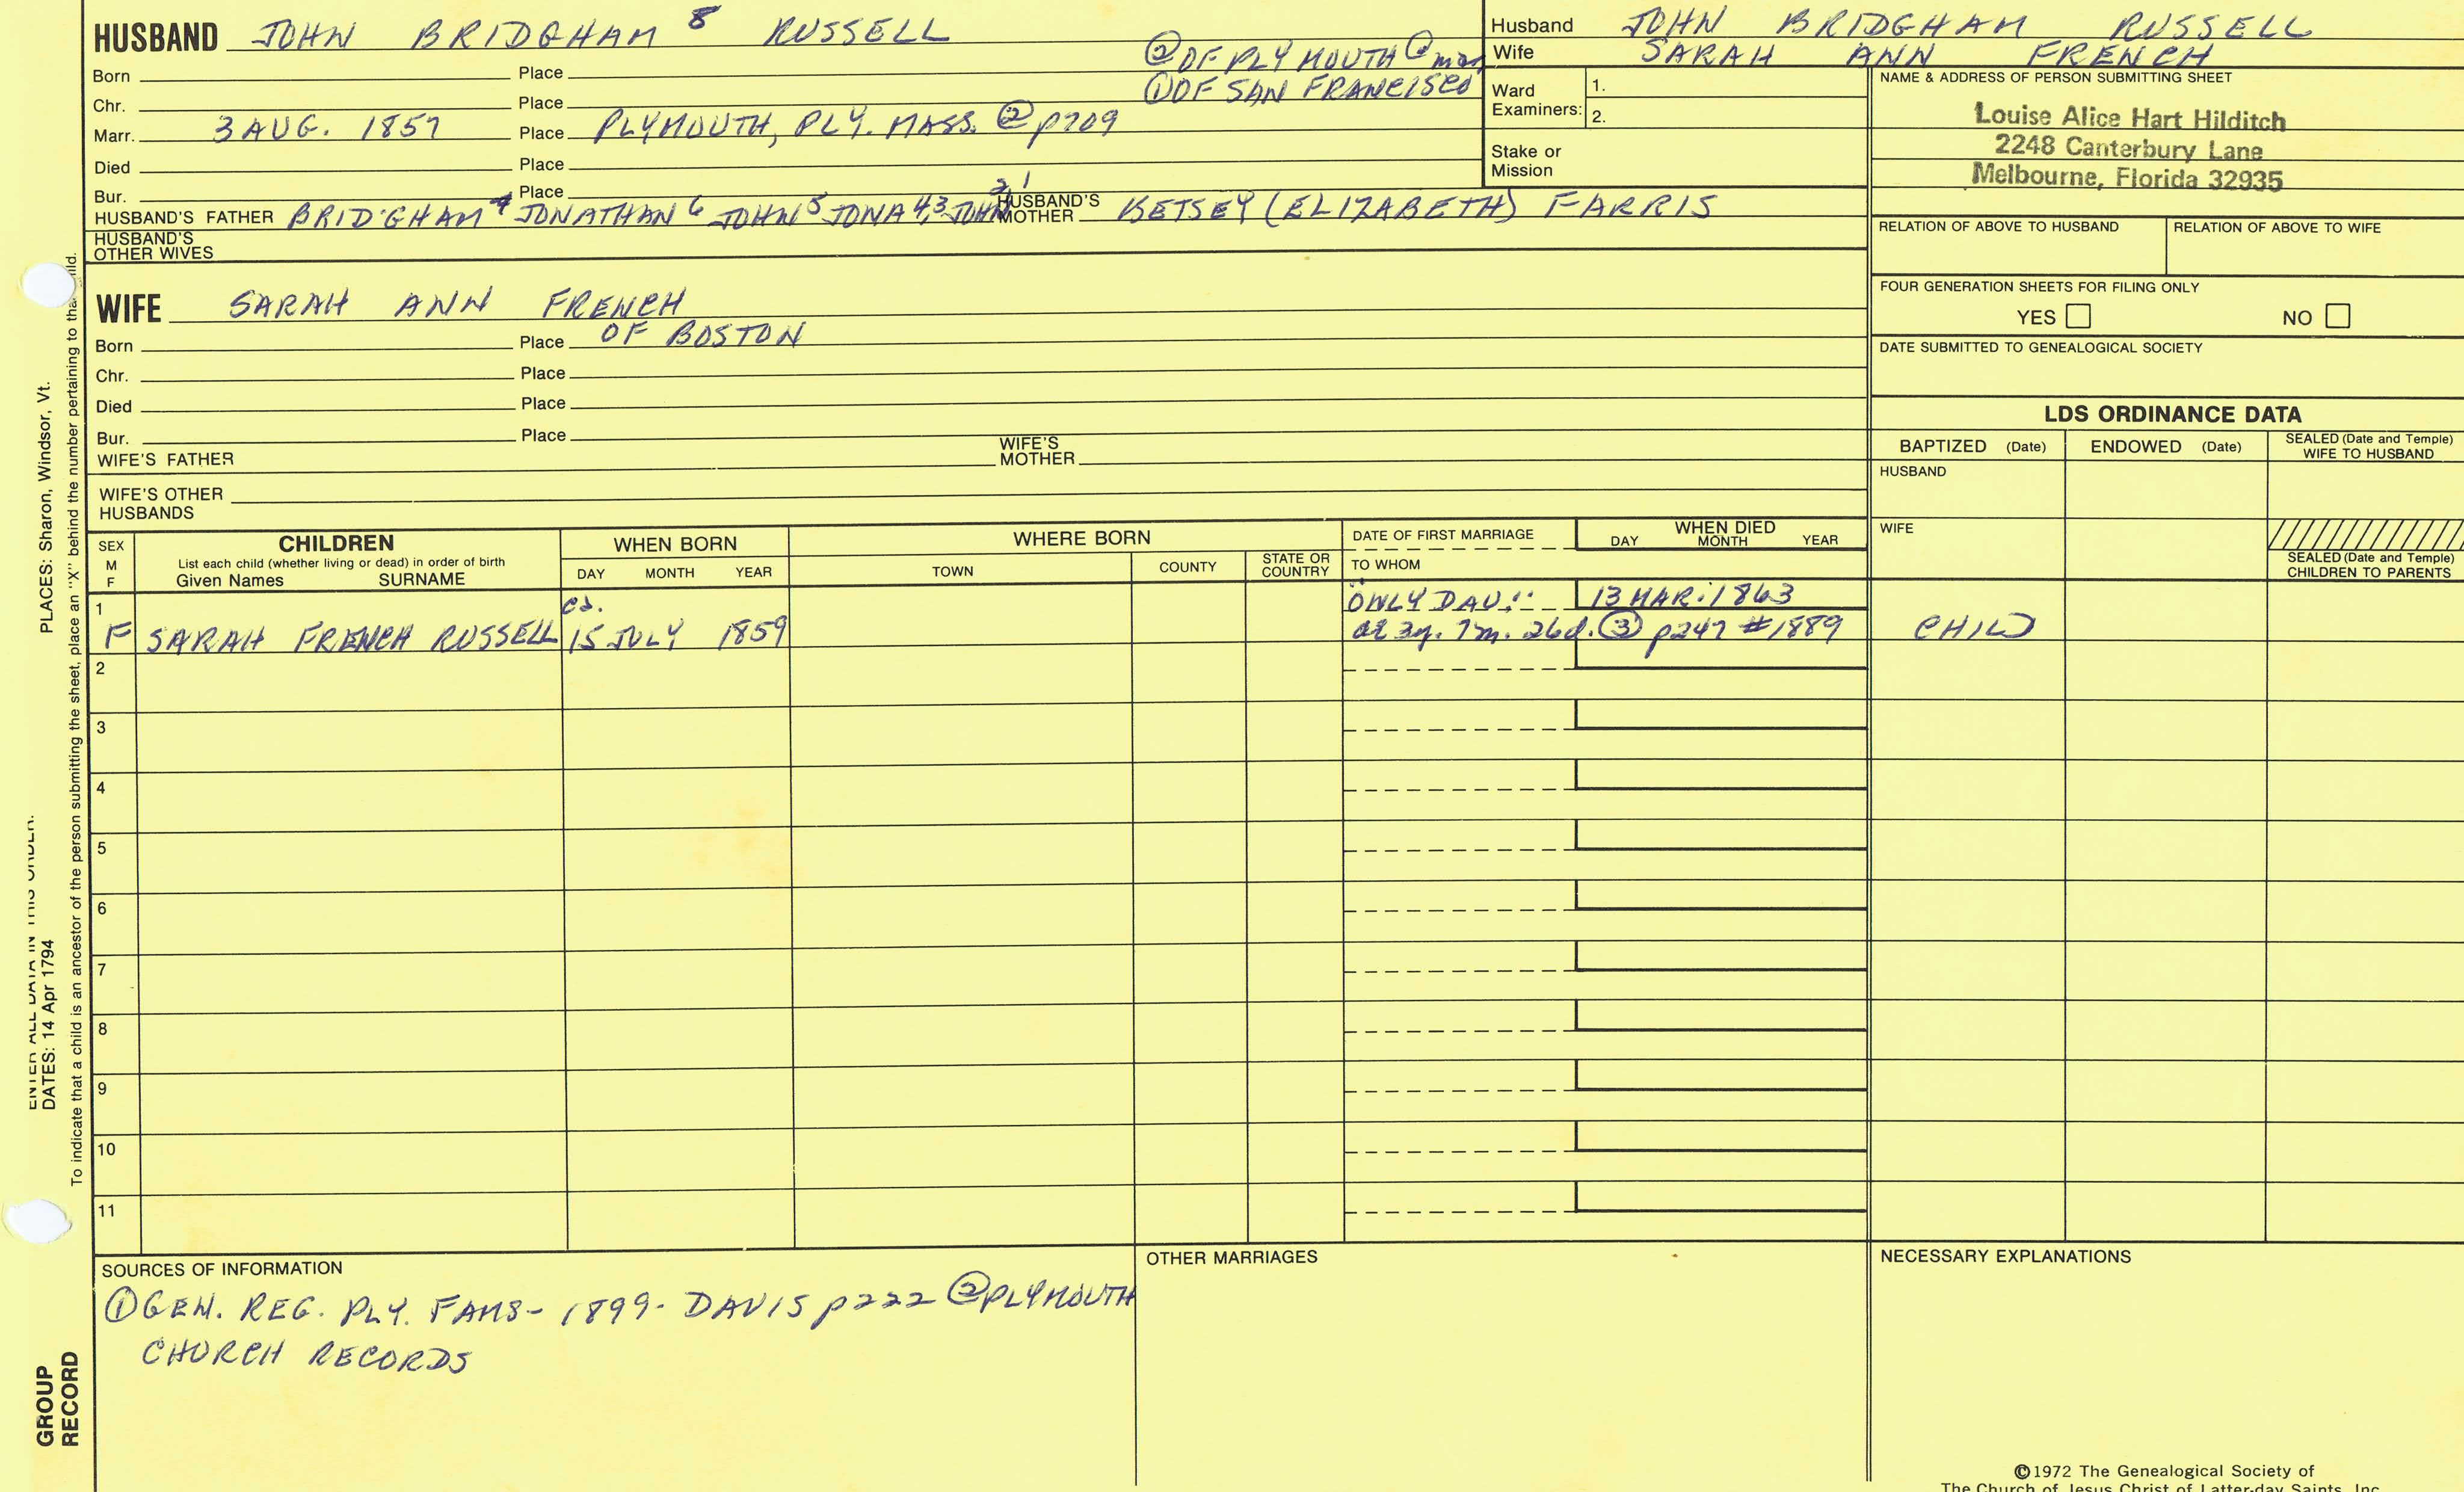 HUSBAND JOHN BRIDGHAM 8 RUSSELL
② OF PLYMOUTH
① OF SAN FRANCISCO
Born Place
Chr. Place
Marr. 3 AUG. 1857 Place PLYMOUTH, PLY. MASS. ② p709
Died Place
Bur. Place
HUSBAND'S FATHER BRIDGHAM 7 JONATHAN 6 JOHN 5 JONA 4,3 JOHN 2 1 HUSBAND'S MOTHER BETSEY (ELIZABETH) FARRIS
HUSBAND'S
OTHER WIVES
WIFE SARAH ANN FRENCH
Born Place OF BOSTON
Chr. Place
Died Place
Bur. Place
WIFE'S FATHER WIFE'S MOTHER
WIFE'S OTHER
HUSBANDS
Husband JOHN BRIDGHAM RUSSELL
Wife SARAH ANN FRENCH
Ward
Examiners:
1.
2.
Stake or
Mission
NAME & ADDRESS OF PERSON SUBMITTING SHEET
Louise Alice Hart Hilditch
2248 Canterbury Lane
Melbourne, Florida 32935
RELATION OF ABOVE TO HUSBAND RELATION OF ABOVE TO WIFE
FOUR GENERATION SHEETS FOR FILING ONLY
YES NO
DATE SUBMITTED TO GENEALOGICAL SOCIETY
LDS ORDINANCE DATA
BAPTIZED (Date) ENDOWED (Date) SEALED (Date and Temple)
WIFE TO HUSBAND
HUSBAND
WIFE
SEALED (Date and Temple)
CHILDREN TO PARENTS
SEX
M
F
CHILDREN
List each child (whether living or dead) in order of birth
Given Names SURNAME
WHEN BORN
DAY MONTH YEAR
WHERE BORN
TOWN COUNTY STATE OR
COUNTRY
DATE OF FIRST MARRIAGE
TO WHOM
WHEN DIED
DAY MONTH YEAR
1 ca. ONLY DAU. 13 MAR. 1863
F SARAH FRENCH RUSSELL 15 JULY 1859 ae 3y. 7m. 26d. ③ p247 #1889 CHILD
2
3
4
5
6
7
8
9
10
11
SOURCES OF INFORMATION
① GEN. REG. PLY. FAMS - 1899 - DAVIS p222 ② PLYMOUTH
CHURCH RECORDS
OTHER MARRIAGES
NECESSARY EXPLANATIONS
©1972 The Genealogical Society of
The Church of Jesus Christ of Latter-day Saints, Inc.
ENTER ALL DATA IN THIS ORDER:
DATES: 14 Apr 1794
PLACES: Sharon, Windsor, Vt.
To indicate that a child is an ancestor of the person submitting the sheet, place an "X" behind the number pertaining to that child.
GROUP
RECORD